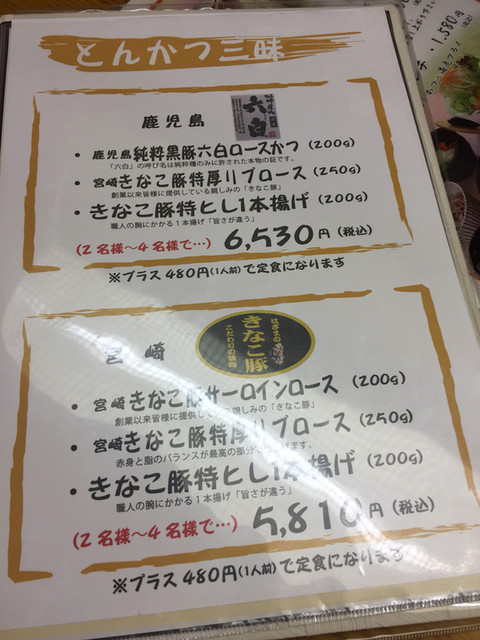 1,580円
(税込)
とんかつ三昧
鹿児島
六白
・鹿児島純粋黒豚六白ロースかつ(200g)
「六白」の呼び名は純粋種のみに許された本物の証です。
・宮崎きなこ豚特厚リブロース(250g)
創業以来皆様に提供している親しみの「きなこ豚」
・きなこ豚特ヒレ1本揚げ(200g)
職人の腕にかかる1本揚げ「旨さが違う」
(2名様〜4名様で…) 6,530円(税込)
※プラス480円(1人前)で定食になります
宮崎
はざまの
きなこ豚
こだわりの豚肉
・宮崎きなこ豚サーロインロース(200g)
創業以来皆様に提供している親しみの「きなこ豚」
・宮崎きなこ豚特厚リブロース(250g)
赤身と脂のバランスが最高の部分
・きなこ豚特ヒレ1本揚げ(200g)
職人の腕にかかる1本揚げ「旨さが違う」
(2名様〜4名様で…) 5,810円(税込)
※プラス480円(1人前)で定食になります